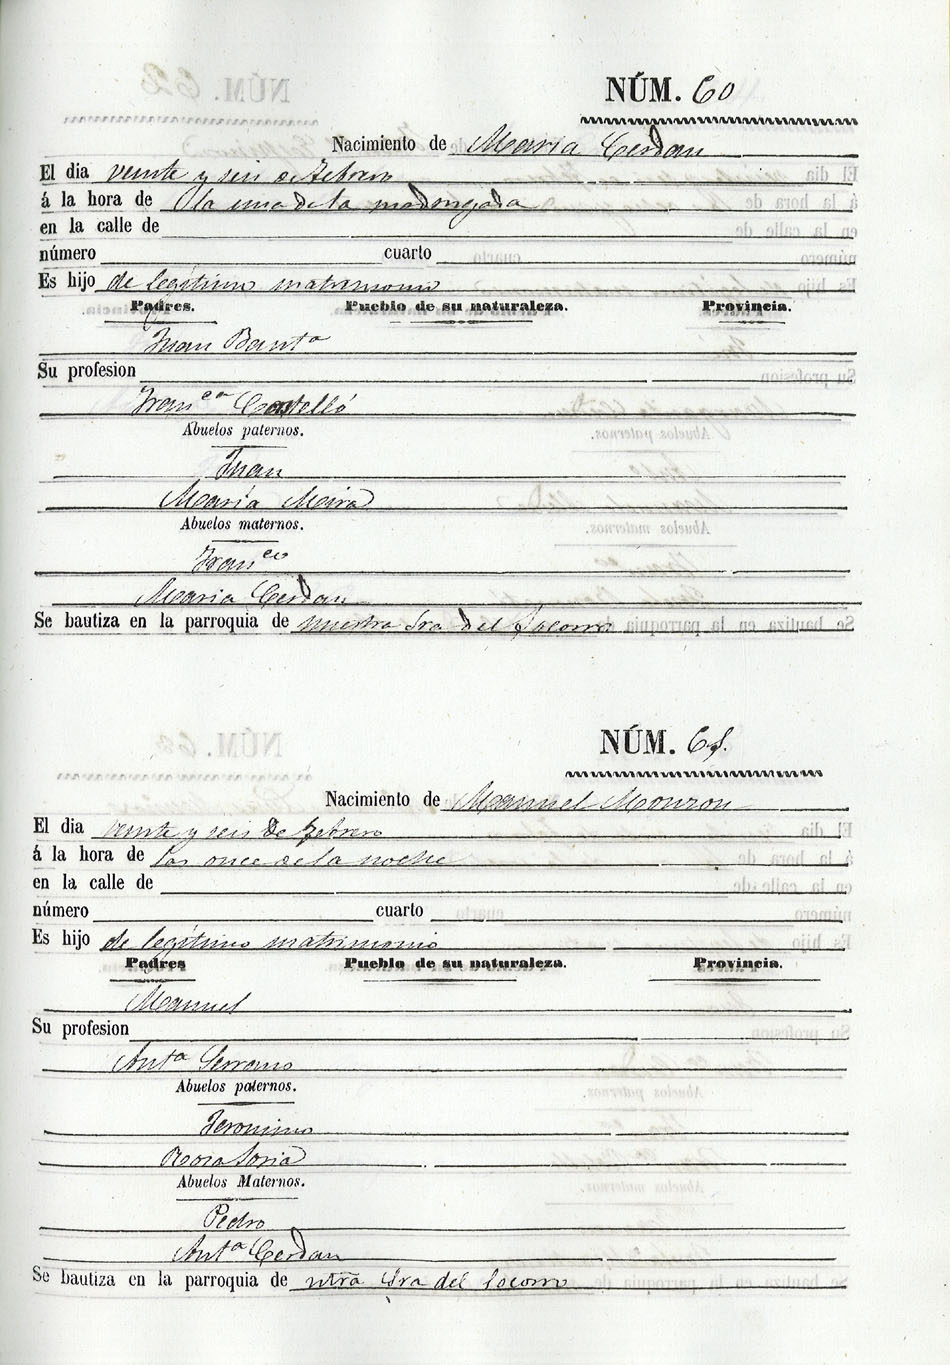 NÚM. 60
Nacimiento de Maria Cerdan
El dia veinte y seis de Febrero
á la hora de la una de la madrugada
en la calle de
número cuarto
Es hijo de legítimo matrimonio
Padres. Pueblo de su naturaleza. Provincia.
Juan
Su profesion
Franca Castelló
Abuelos paternos.
Juan
Maria Mira
Abuelos maternos.
Franco
Maria Cerdan
Se bautiza en la parroquia de nuestra Sra del Socorro
NÚM. 61.
Nacimiento de Manuel Monzon
El dia veinte y seis de Febrero
á la hora de las once de la noche
en la calle de
número cuarto
Es hijo de legítimo matrimonio
Padres Pueblo de su naturaleza. Provincia.
Manuel
Su profesion
Anta Serrano
Abuelos paternos.
Jeronimo
Rosa Soria
Abuelos Maternos.
Pedro
Anta Cerdan
Se bautiza en la parroquia de ntra Sra del Socorro